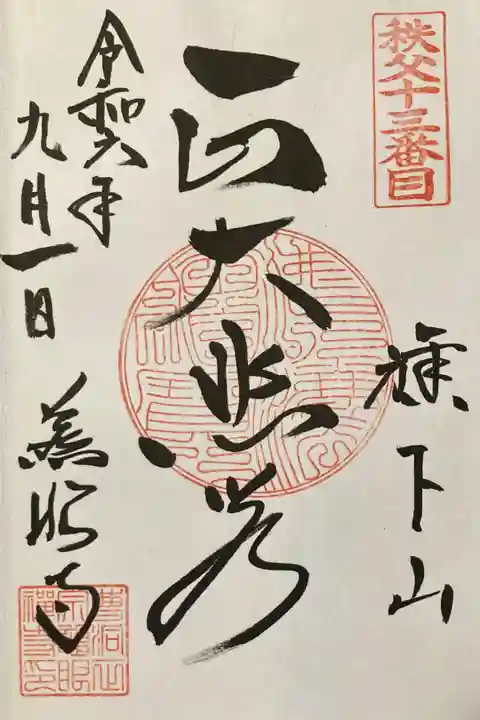 秩父十三番目
旗下山
正大悲閣
令和六年
九月一日
慈眼寺